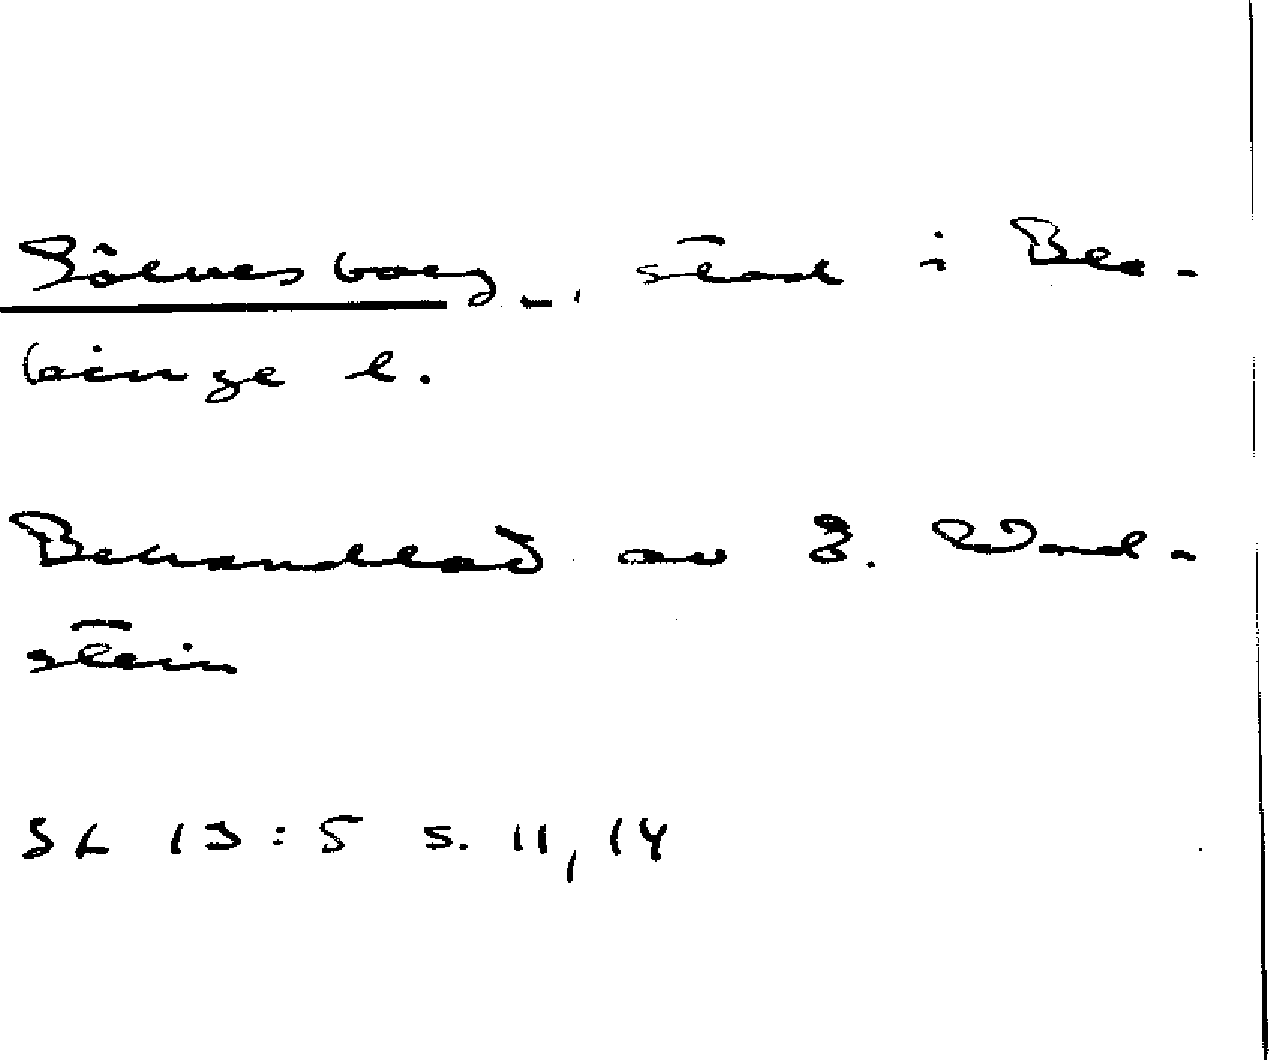 Sölvesborg, stad i Ble-
kinge l.
Behandlad av E. Wad-
stein
SL 13:5 s. 11, 14